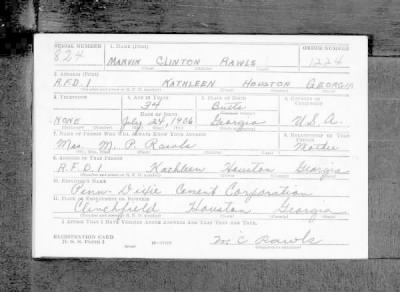 SERIAL NUMBER 1. NAME (Print) ORDER NUMBER
824 MARVIN CLINTON RAWLS 1224
(First) (Middle) (Last)
2. ADDRESS (Print)
R.F.D. 1 KATHLEEN HOUSTON GEORGIA
3. TELEPHONE 4. AGE IN YEARS 5. PLACE OF BIRTH 6. COUNTRY OF CITIZENSHIP
34 Butts
DATE OF BIRTH
NONE July 24, 1906 Georgia U.S.A.
7. NAME OF PERSON WHO WILL ALWAYS KNOW YOUR ADDRESS 8. RELATIONSHIP OF THAT PERSON
Mrs. M. P. Rawls Mother
9. ADDRESS OF THAT PERSON
R.F.D. 1 Kathleen Houston Georgia
10. EMPLOYER'S NAME
Penn-Dixie Cement Corporation
11. PLACE OF EMPLOYMENT OR BUSINESS
Clinchfield Houston Georgia
I AFFIRM THAT I HAVE VERIFIED ABOVE ANSWERS AND THAT THEY ARE TRUE.
REGISTRATION CARD
D. S. S. FORM 1 M C Rawls